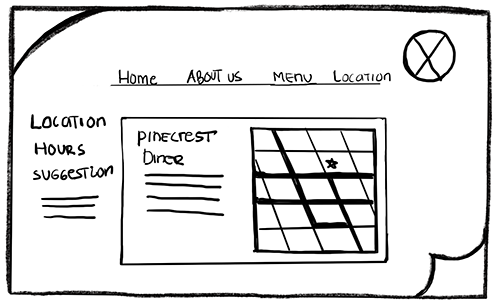 Home ABOUT US MENU Location
LOCATION
HOURS
SUGGESTION
PINECREST
DINER